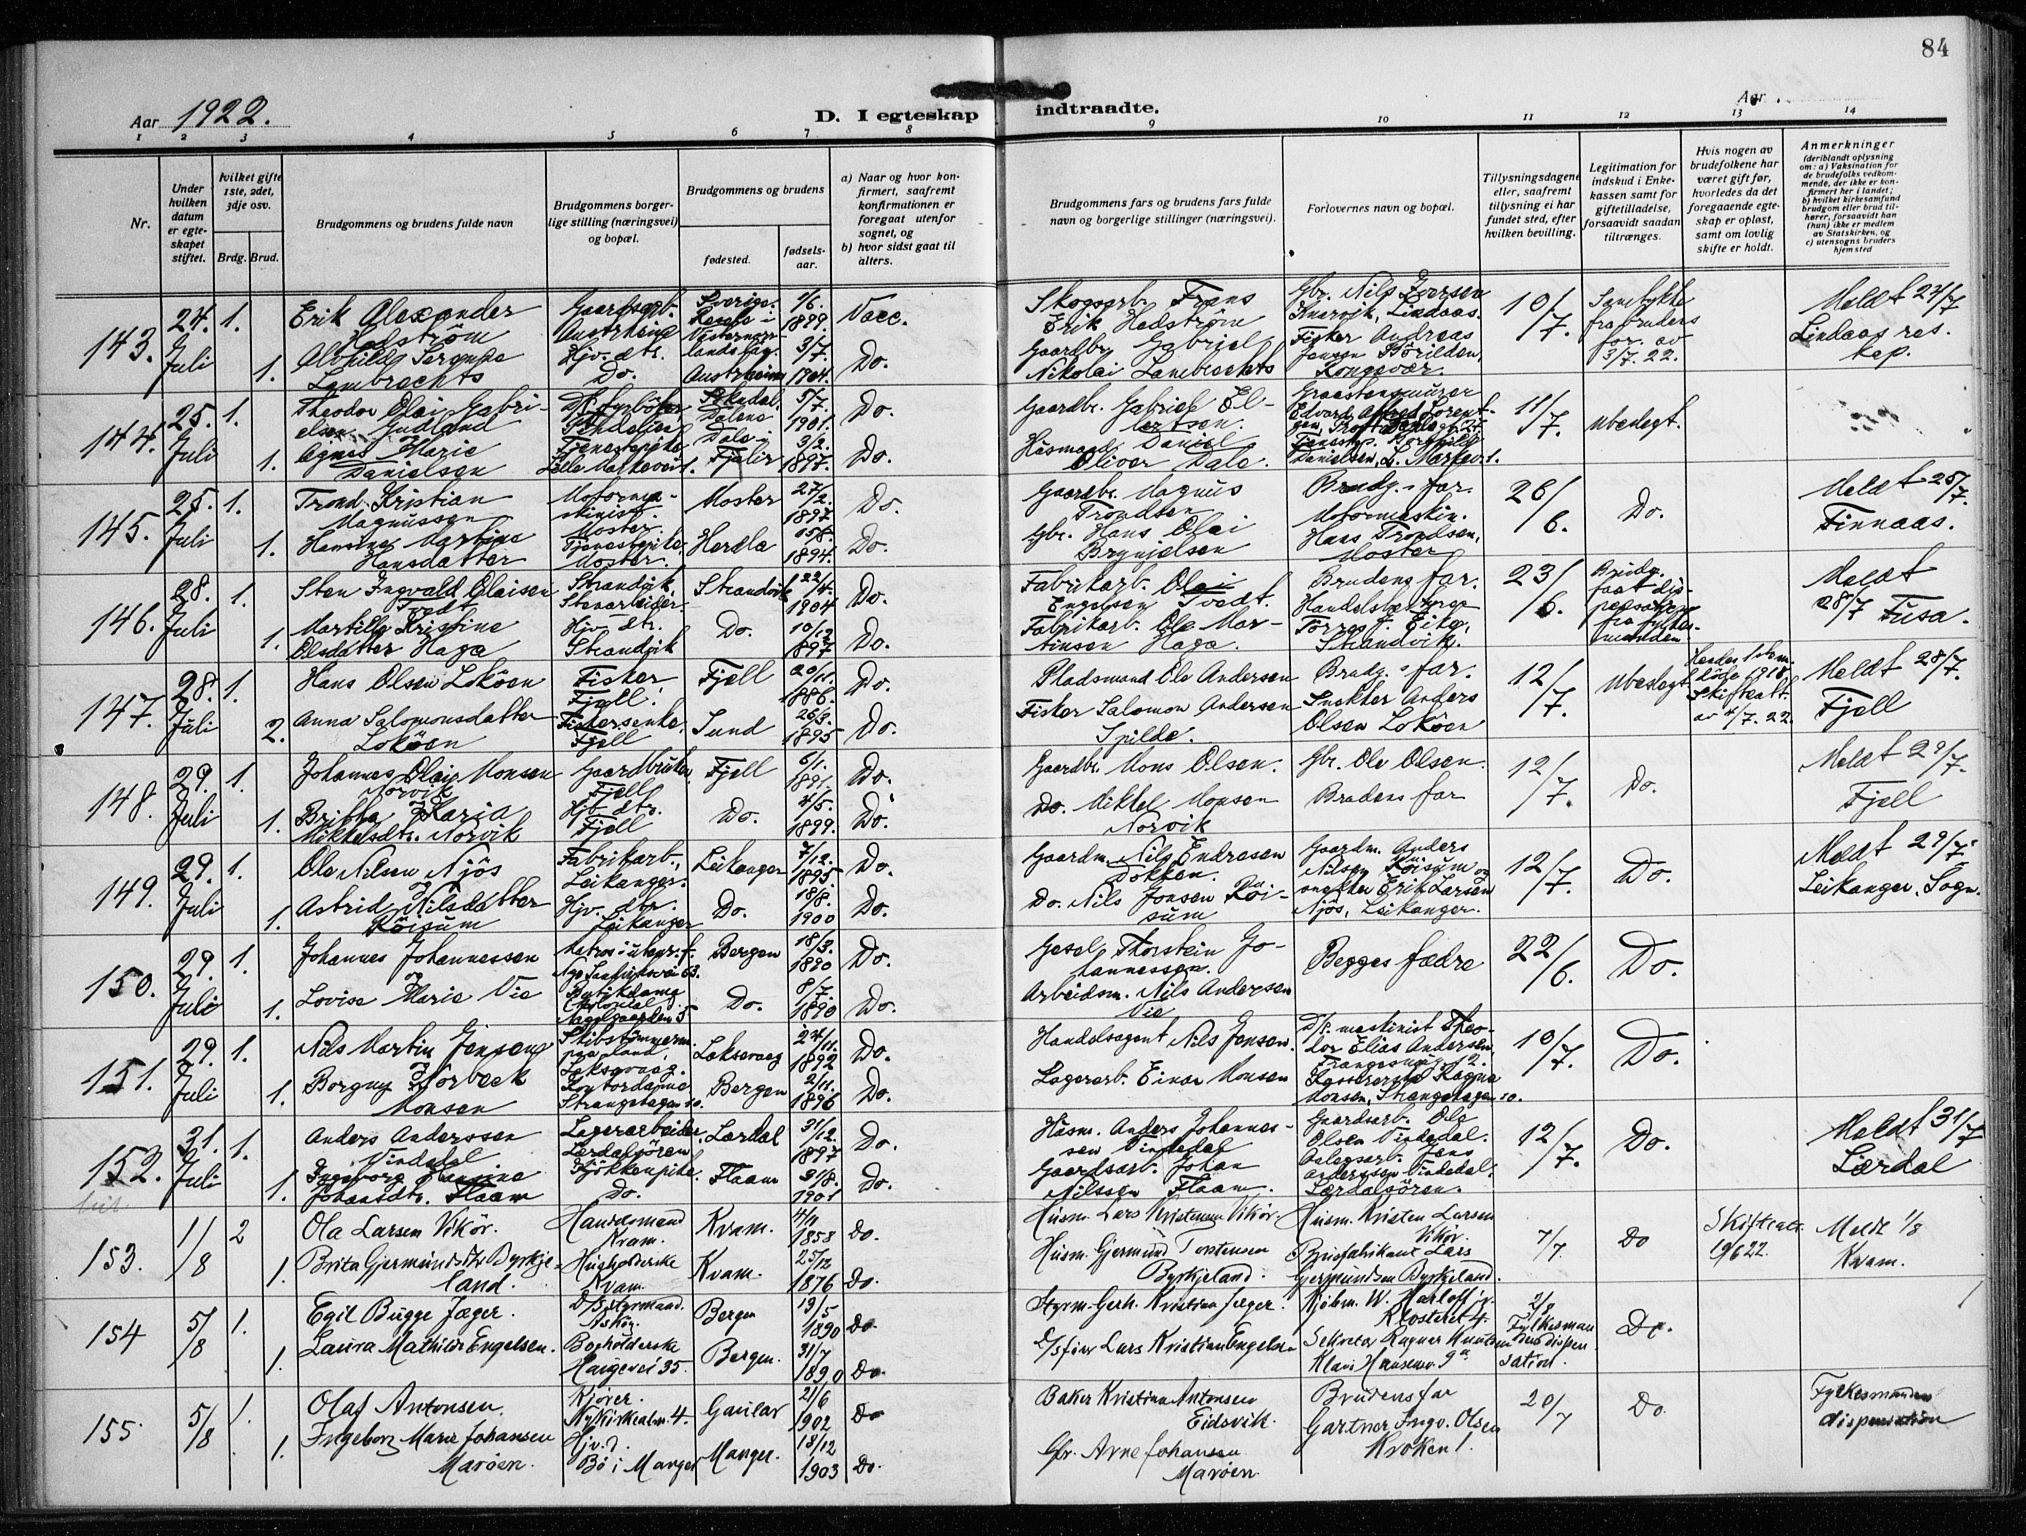 84
Aar 1922.
D. I egteskap indtraadte.
Aar
1 2 3 4 5 6 7 8 9 10 11 12 13 14
Nr.
Under hvilken datum er egteskapet stiftet.
hvilket gifte 1ste, 2det, 3dje osv.
Brdg. Brud.
Brudgommens og brudens fulde navn
Brudgommens borgerlige stilling (næringsvei) og bopæl.
Brudgommens og brudens
fødested.
fødselsaar.
a) Naar og hvor konfirmert, saafremt konfirmationen er foregaat utenfor sognet, og
b) hvor sidst gaat til alters.
Brudgommens fars og brudens fars fulde navn og borgerlige stillinger (næringsvei).
Forlovernes navn og bopæl.
Tillysningsdagene eller, saafremt tillysning ei har fundet sted, efter hvilken bevilling.
Legitimation for indskud i Enkekassen samt for giftetilladelse, forsaavidt saadan tiltrænges.
Hvis nogen av brudefolkene har været gift før, hvorledes da det foregaaende egteskap er opløst, samt om lovlig skifte er holdt.
Anmerkninger
(deriblandt oplysning om: a) Vaksination for de brudefolks vedkommende, der ikke er konfirmert her i landet; b) hvilket kirkesamfund brudgom eller brud tilhører, forsaavidt han (hun) ikke er medlem av Statskirken, og c) utensogns bruders hjemsted
143. 24. Juli 1. Erik Alexander Hedström Gaardsgb. Austrheim Sverige 1/6. 1899. Vacc. Skogsarb. Frans Erik Hedström Gbr. Nils Iversen Knarvik, Lindaas. 10/7. Samtykke fra bruders far av 3/7. 22. Meldt 24/7 Lindaas res. kap.
1. Lambrechts Hjv. dtr. Do. Austrheim 3/7. 1904. Do. Gaardbr. Gabriel Nikolai Lambrechts Fisker Andreas
144. 25. Juli 1. Theodor Olai Gabrielsen Gudland 5/7. 1901. Do. Gaardbr. Gabriel 11/7. ubeslegt.
1. Agnes Marie Danielsen Dale i Fjaler 3/2. 1897. Do. Husmand Daniel Oliver Dale.
145. 25. Juli 1. Trond Kristian Magnussen Motormaskinist. Moster Moster 27/2. 1897 Do. Gaardbr. Magnus Trondsen Brudg.s far. 26/6. Do. Meldt 25/7. Finnaas.
1. Hansine Martine Hansdatter Tjenestepike Moster. Herdla 1894. Do. Gbr. Hans Olai Brynjelsen Motormaskin. Hans Trondsen, Moster
146. 28. Juli 1. Sten Ingvald Olaisen Tvedt Strandvik Stenarbeider Strandvik 22/4. 1904 Do. Fabrikarb. Olai Engelsen Tvedt. Brudens far. 23/6. Brudg. faat dispensation fra fylkesmanden. Meldt 28/7 Fusa.
1. Martille Kristine Olsdatter Haga Hjv. dtr. Strandvik Do. 10/12 1897 Do. Fabrikarb. Ole Martinsen Haga. Handelsbetyrer Torres J. Eike, Strandvik.
147. 28. Juli 1. Hans Olsen Loköen Fisker, Fjell. Fjell 20/11. 1886. Do. Pladsmand Ole Andersen Brudg.s far. 12/7. ubeslegt Skifteatt. av 4/7. 22. Meldt 28/7. Fjell
2. Anna Salomonsdatter Loköen Fiskersenke Fjell Sund 26/3. 1895 Do. Fisker Salomon Andersen Spilde. Snekker Anders Olsen Loköen
148. 29. Juli 1. Johannes Olai Monsen Norvik Gaardbruker, Fjell Fjell 6/1. 1891. Do. Gaardbr. Mons Olsen. Gbr. Ole Olsen. 12/7. Do. Meldt 29/7. Fjell
1. Britha Karia Mikkelsdtr. Norvik Hjv. dtr. Fjell Do. 4/5. 1899. Do. Do. Mikkel Monsen Norvik Brudens far
149. 29. Juli 1. Ole Nilsen Njös Fabrikarb., Leikanger. Leikanger 7/12. 1895 Do. Gaardm. Nils Endresen Dokken. Gaardm. Anders Nilsen Röisum og 12/7. Do. Meldt 29/7. Leikanger, Sogn.
1. Astrid Nilsdatter Röisum Hjv. dtr. Leikanger Do. 18/8. 1900 Do. Do. Nils Jonsen Röisum snekker Erik Larsen Njös, Leikanger.
150. 29. Juli 1. Johannes Johannessen og Bergen 18/3. 1890 Do. Gesel Thorstein Johannessen. Begges fædre 22/6. Do.
1. Lovise Marie Vie Butikdame Do. 8/7. 1890 Do. Arbeidsm. Nils Andersen Vie
151. 29. Juli 1. Nils Martin Jensen og Skibstømmerm. paa land, Laksevaag. Laksevaag 24/11. 1892 Do. Handelsagent Nils Jensen. D/S. maskinist Theodor Elias Andersen, 10/7. Do.
1. Borgny Norbeck Monsen Kontordame Strangehagen 10. Bergen 2/11. 1896 Do. Lagerarb. Einar Monsen Kassererske Ragna Monsen, Strangehagen 10.
152. 31. Juli 1. Anders Anderssen Vindedal Lagerarbeider, Lærdalsören. Lærdal 31/12. 1897 Do. Husm. Anders Johannessen Vindedal Gaardsarb. Ole Olsen Vindedal. 12/7. Do. Meldt 31/7 Lærdal
1. Ingeborg Johansdtr. Flaam Kjökkenpike. Do. Flaam 31/8. 1901 Do. Gaardsarb. Johan Nilssen Flaam. Jens Anderssen Vindedal, Lærdalsören.
153. 1/8 2 Ola Larsen Vikör. Husdemand Kvam. Kvam. 4/11 1858 Do. Husm. Lars Kristensen Vikör. Husm. Kristen Larsen Vikör. 7/7. Do Skifteatt. 19/6 22. Meldt 1/8 Kvam.
1. Brita Gjermundsdtr Byrkjeland. Husholderske Kvam. Kvam. 25/12 1876 Do. Husm. Gjermund Torstensen Byrkjeland. Brusfabrikant Lars Gjermundsen Byrkjeland.
154 5/8 1. Egil Bugge Jæger. D/S styrmand. Askøy. Bergen 19/5 1890 Do Styrm. Gerh. Kristian Jæger. Kjøbm. W. Harloff jr. Klosteret 4. 2/8. Fylkesmandens dispensation. Do.
1. Laura Mathilde Engelsen. Bogholderske Haugevei 35. Bergen. 31/7 1890 Do D/S fører Lars Kristian Engelsen Sekretær Ragnar Knutsen Klaus Hansensv. 9a
155 5/8 1. Olaf Antonsen. Kjører. Nykirkealm. 4. Gaular 21/6 1902 Do Baker Kristian Antonsen Eidsvik. Brudens far 20/7 Do Fylkesmandens dispensation
1. Ingeborg Marie Johansen Marøen. Hjv. d. Bø i Manger Manger. 18/12 1903 Do. Gbr. Arne Johansen Marøen Gartner Ingv. Olsen Kroken 1.